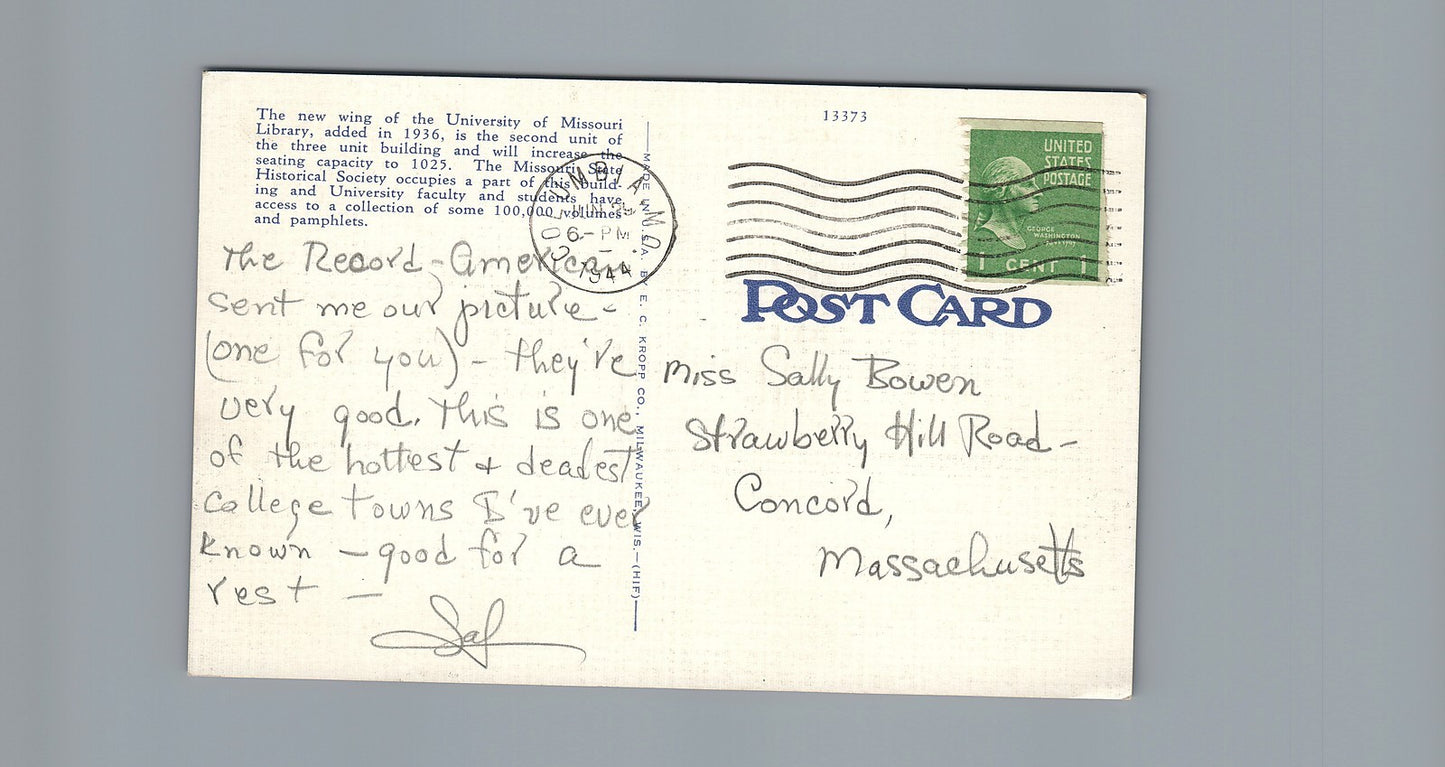 The new wing of the University of Missouri
Library, added in 1936, is the second unit of
the three unit building and will increase the
seating capacity to 1025. The Missouri State
Historical Society occupies a part of this build-
ing and University faculty and students have
access to a collection of some 100,000 volumes
and pamphlets.
The Record-American
sent me our picture -
(one for you) - they're
very good. This is one
of the hottest + deadest
college towns I've ever
known - good for a
rest -
MADE IN U.S.A. BY E. C. KROPP CO., MILWAUKEE, WIS.-(HIF)
COLUMBIA MO.
JUN 29
6-PM
1944
13373
UNITED
STATES
POSTAGE
GEORGE
WASHINGTON
1 CENT 1
POST CARD
Miss Sally Bowen
Strawberry Hill Road-
Concord,
Massachusetts